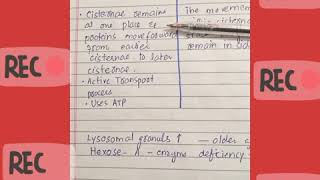 REC
REC
• Cisternae remains
at one place &
proteins move forward
from earlier
cisternae to later
cisternae.
• Active Transport
process
• Uses ATP
The movement
cisternae
remain in
Lysosomal granules ↑ — older
Hexose - A - enzyme deficiency
REC
REC